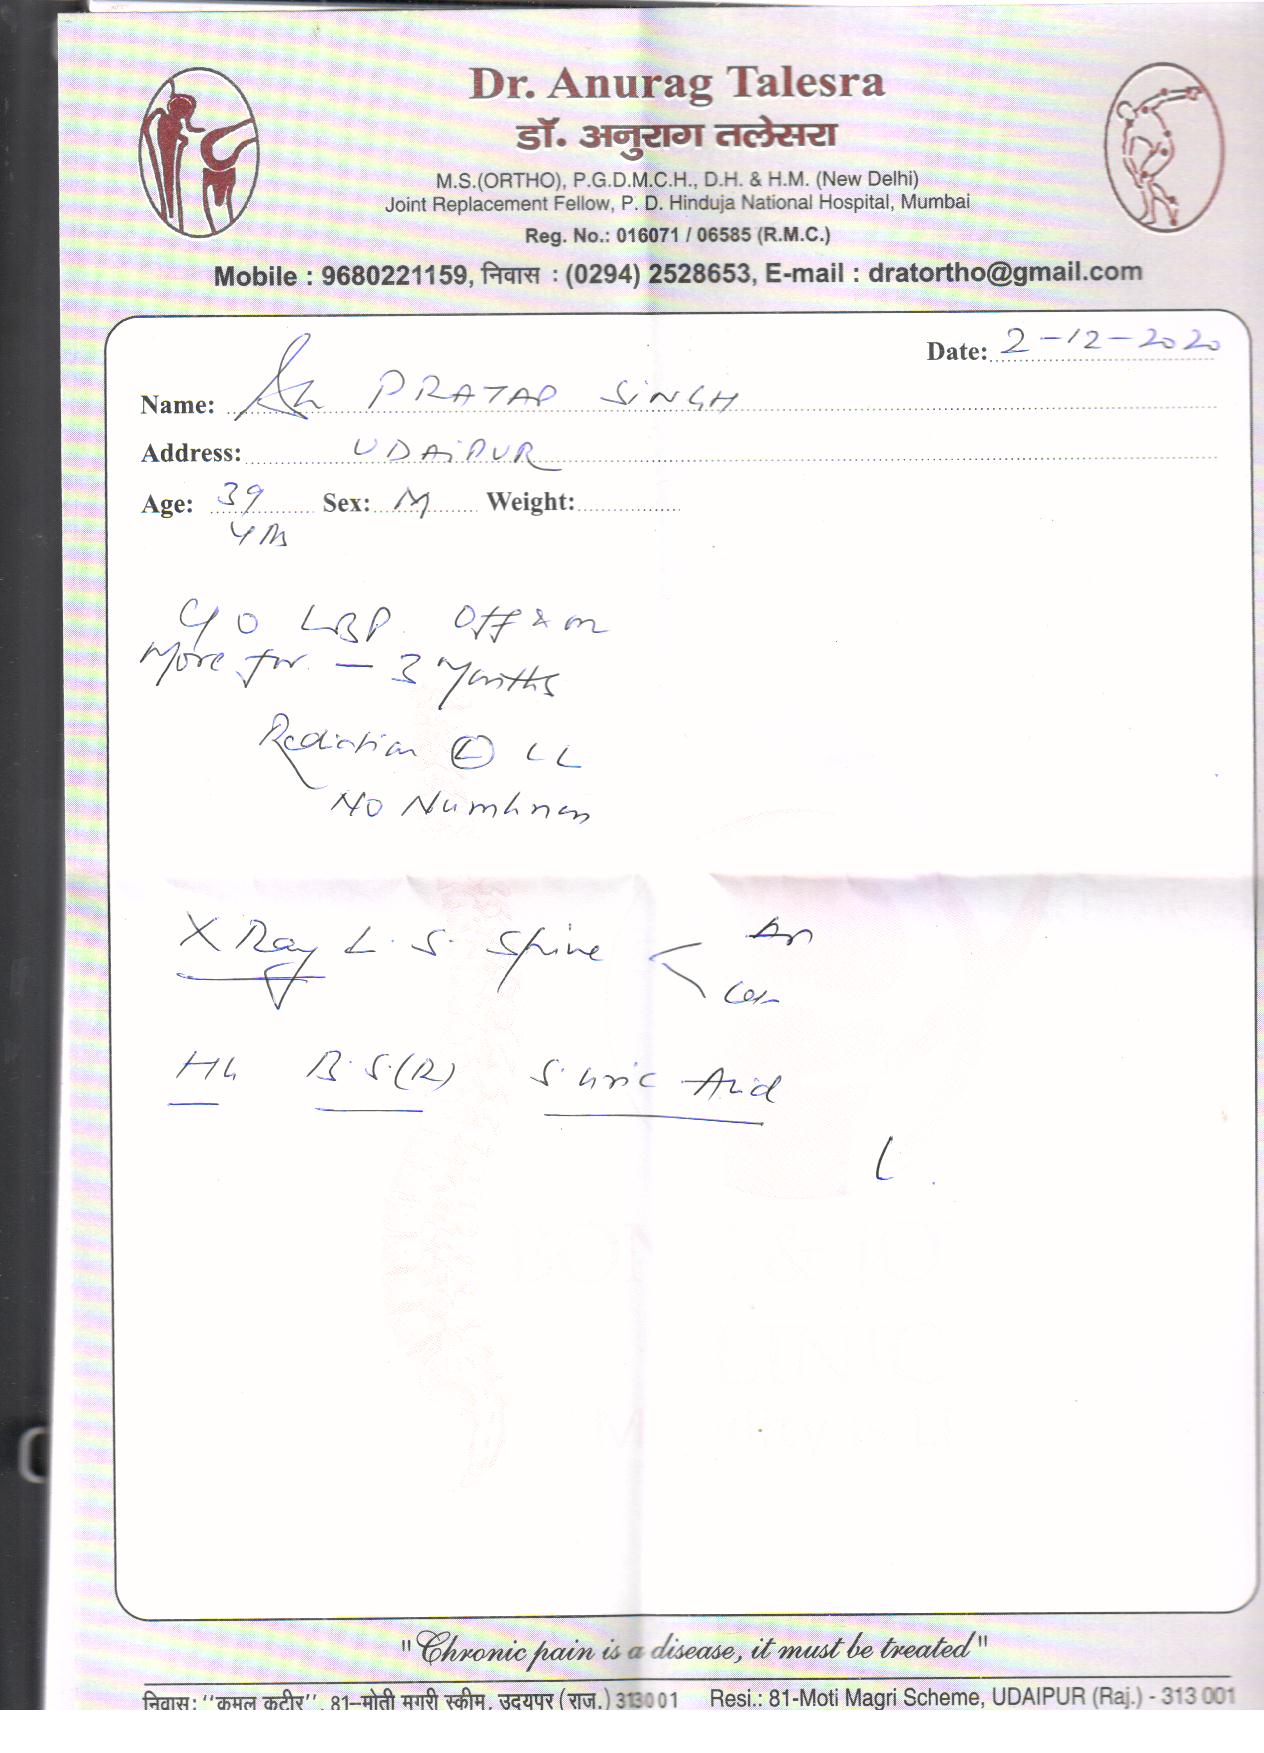 Dr. Anurag Talesra
डॉ. अनुराग तलेसरा
M.S.(ORTHO), P.G.D.M.C.H., D.H. & H.M. (New Delhi)
Joint Replacement Fellow, P. D. Hinduja National Hospital, Mumbai
Reg. No.: 016071 / 06585 (R.M.C.)
Mobile : 9680221159, निवास : (0294) 2528653, E-mail : dratortho@gmail.com
Date: 2-12-2020
Name: PRATAP SINGH
Address: UDAIPUR
Age: 39 Sex: M Weight:
C/O LBP Off & on
More for - 3 Months
Radiation (L) LL
No Numbness
X Ray L.S. Spine
AP
Hb B.S.(R) S. Uric Acid
"Chronic pain is a disease, it must be treated"
निवास: ''कमल कटीर'', 81–मोती मगरी स्कीम, उदयपुर (राज.) 313001 Resi.: 81-Moti Magri Scheme, UDAIPUR (Raj.) - 313 001